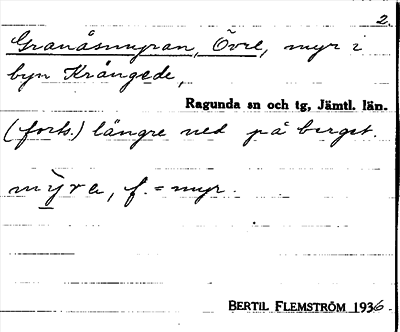 2.
Granåsmyran, Övre, myr i
byn Krångede,
Ragunda sn och tg, Jämtl. län.
(forts.) längre ned på berget.
mỳra, f. = myr.
BERTIL FLEMSTRÖM 1936.